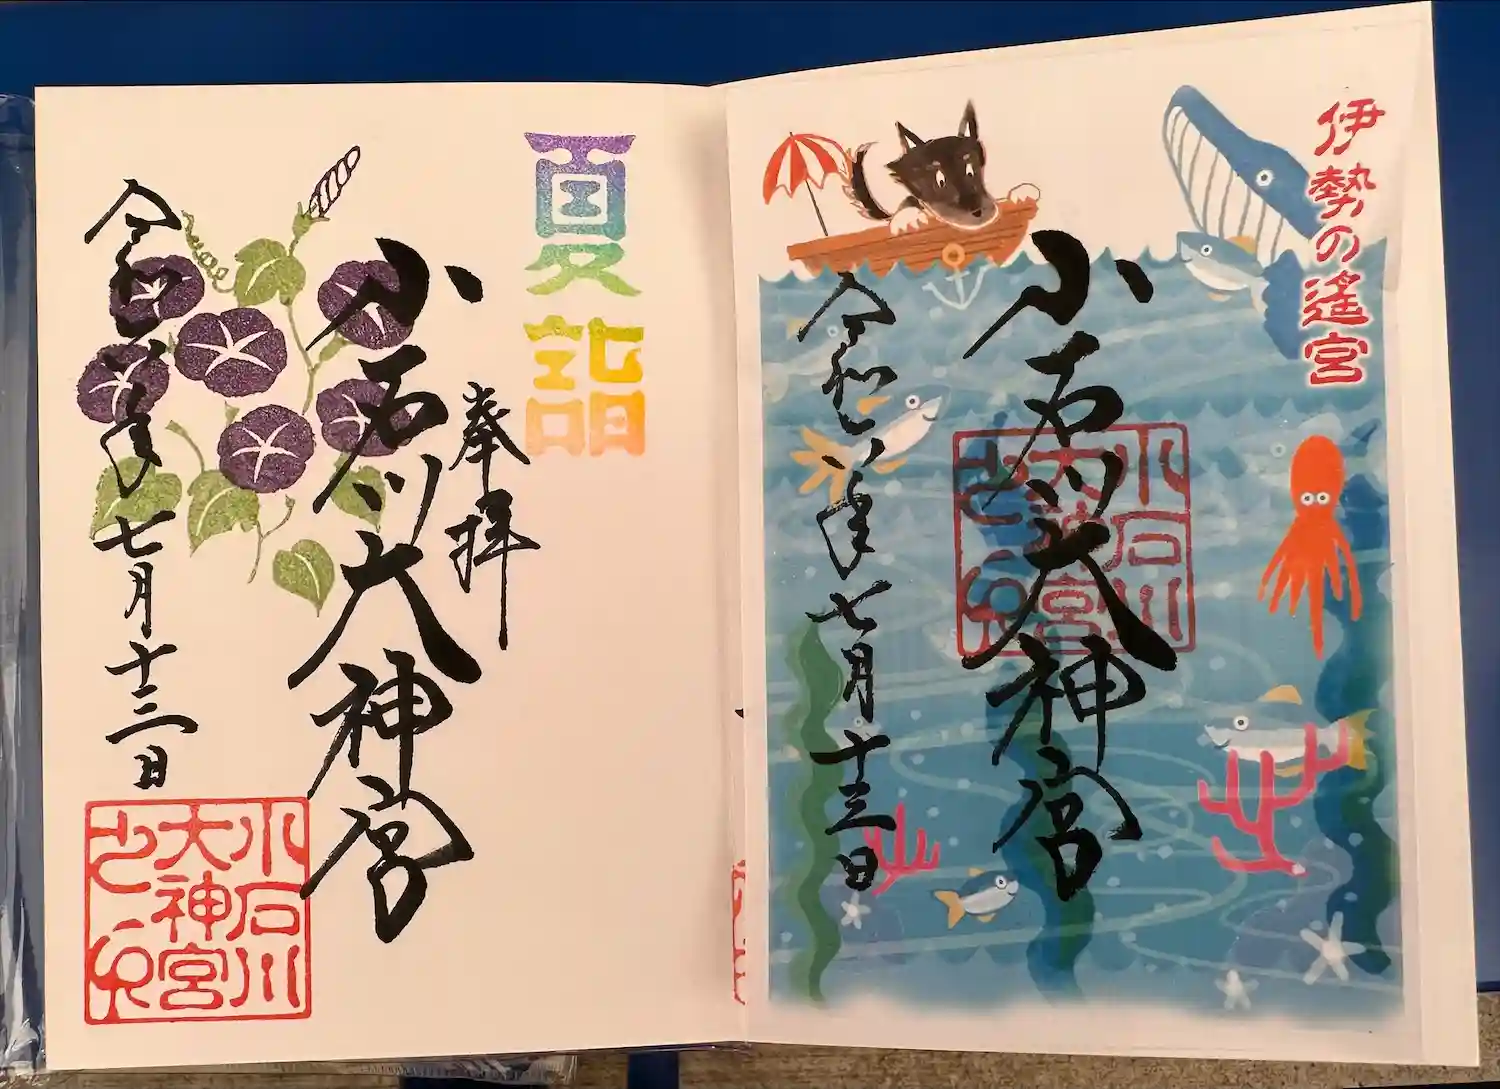 伊勢の遙宮
小石川大神宮
小石川
大神宮
之印
令和八年七月十三日
夏詣
奉拝
小石川大神宮
令和八年七月十三日
小石川
大神宮
之印